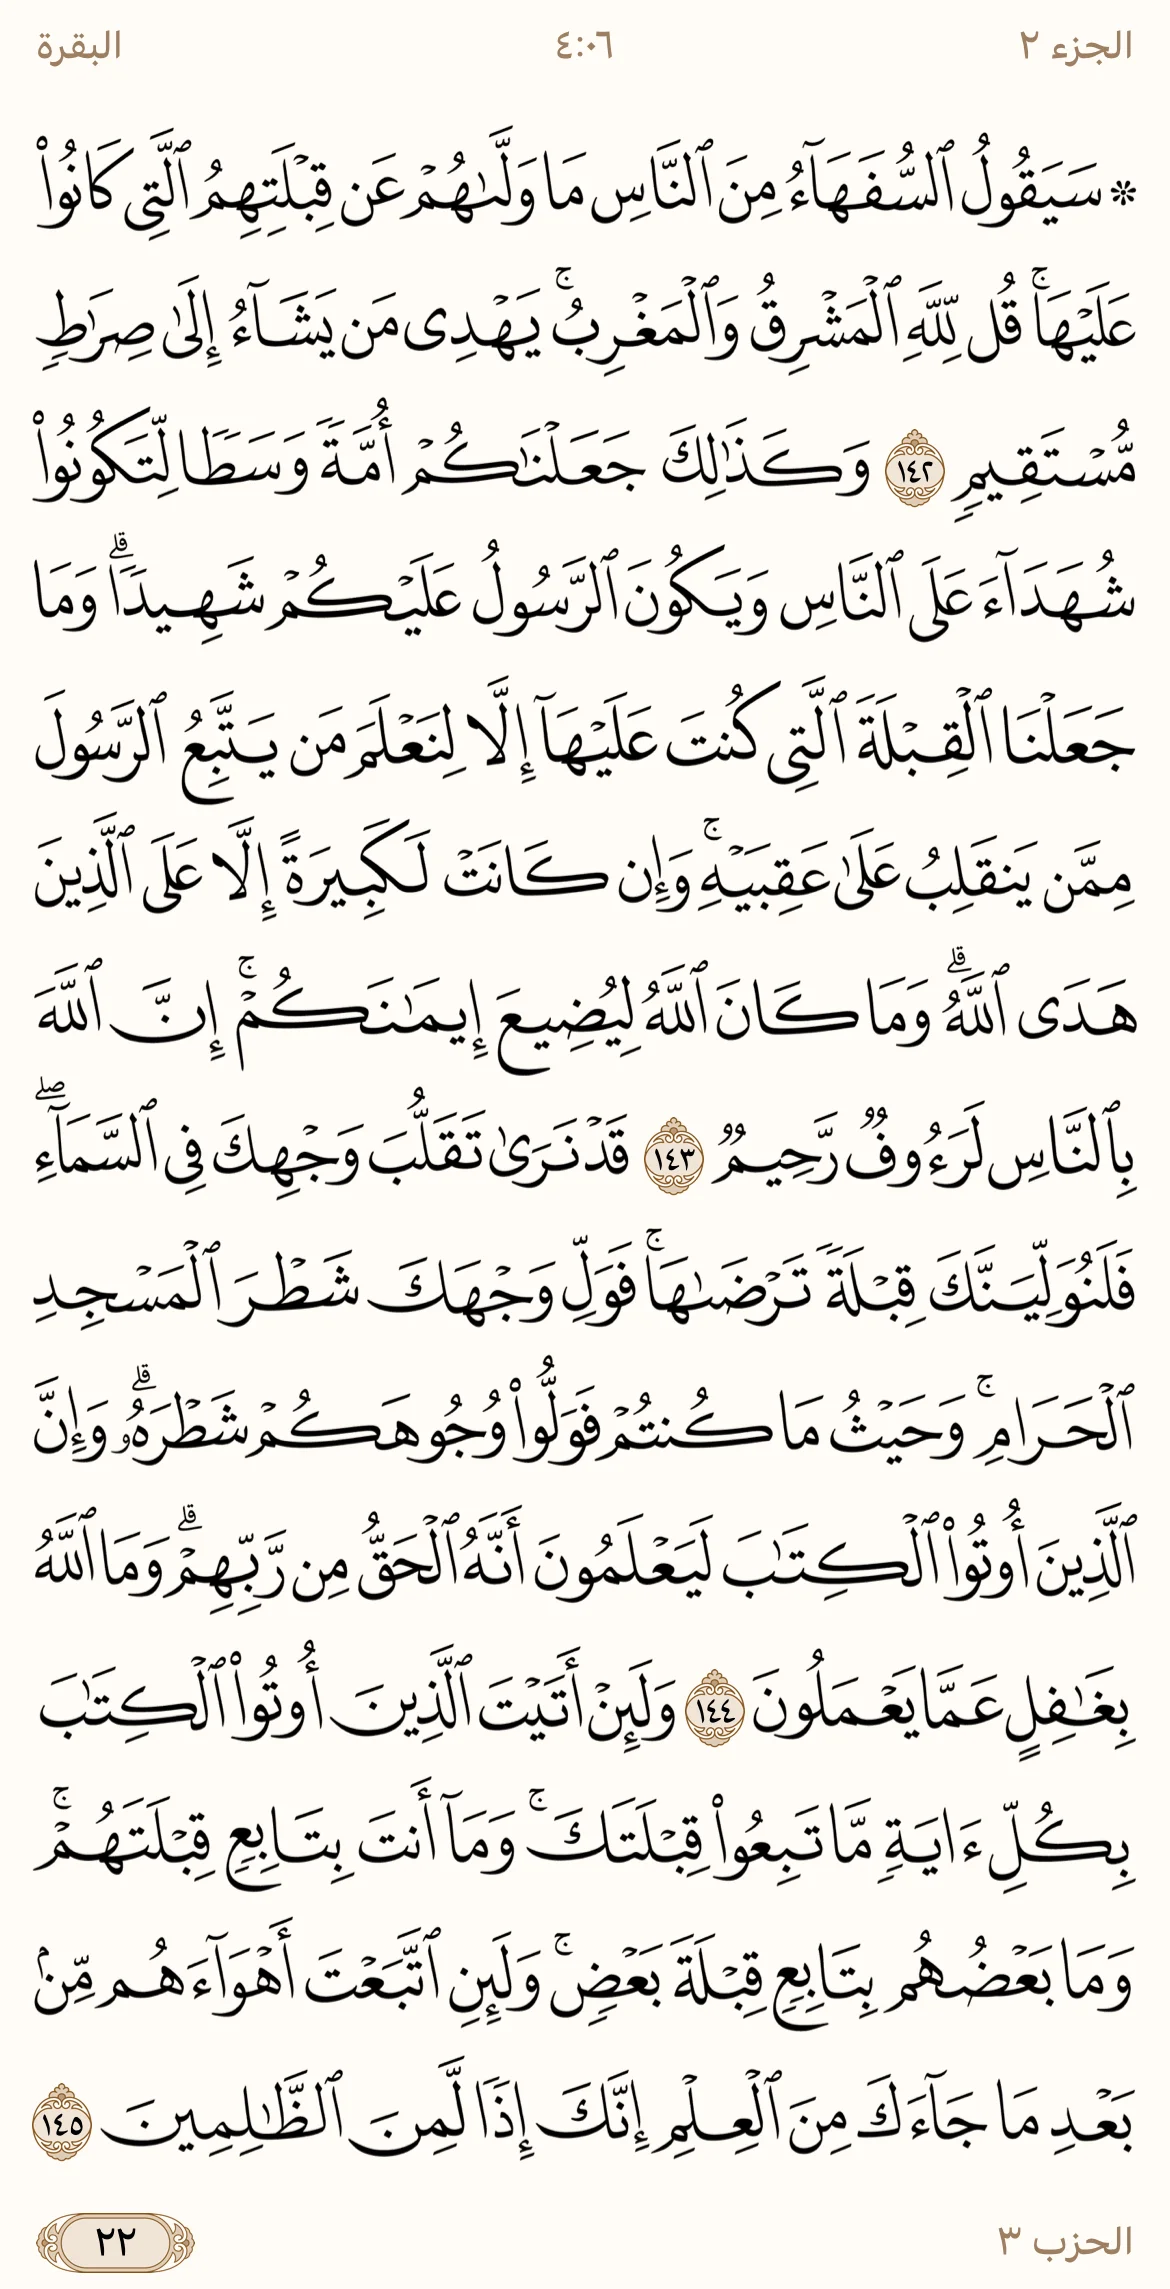 الجزء ٢
٤:٠٦
البقرة
۞ سَيَقُولُ ٱلسُّفَهَآءُ مِنَ ٱلنَّاسِ مَا وَلَّىٰهُمْ عَن قِبْلَتِهِمُ ٱلَّتِى كَانُوا۟
عَلَيْهَا ۚ قُل لِّلَّهِ ٱلْمَشْرِقُ وَٱلْمَغْرِبُ ۚ يَهْدِى مَن يَشَآءُ إِلَىٰ صِرَٰطٍ
مُّسْتَقِيمٍ ١٤٢ وَكَذَٰلِكَ جَعَلْنَـٰكُمْ أُمَّةً وَسَطًا لِّتَكُونُوا۟
شُهَدَآءَ عَلَى ٱلنَّاسِ وَيَكُونَ ٱلرَّسُولُ عَلَيْكُمْ شَهِيدًا ۗ وَمَا
جَعَلْنَا ٱلْقِبْلَةَ ٱلَّتِى كُنتَ عَلَيْهَآ إِلَّا لِنَعْلَمَ مَن يَتَّبِعُ ٱلرَّسُولَ
مِمَّن يَنقَلِبُ عَلَىٰ عَقِبَيْهِ ۚ وَإِن كَانَتْ لَكَبِيرَةً إِلَّا عَلَى ٱلَّذِينَ
هَدَى ٱللَّهُ ۗ وَمَا كَانَ ٱللَّهُ لِيُضِيعَ إِيمَـٰنَكُمْ ۚ إِنَّ ٱللَّهَ
بِٱلنَّاسِ لَرَءُوفٌ رَّحِيمٌ ١٤٣ قَدْ نَرَىٰ تَقَلُّبَ وَجْهِكَ فِى ٱلسَّمَآءِ ۖ
فَلَنُوَلِّيَنَّكَ قِبْلَةً تَرْضَىٰهَا ۚ فَوَلِّ وَجْهَكَ شَطْرَ ٱلْمَسْجِدِ
ٱلْحَرَامِ ۚ وَحَيْثُ مَا كُنتُمْ فَوَلُّوا۟ وُجُوهَكُمْ شَطْرَهُۥ ۗ وَإِنَّ
ٱلَّذِينَ أُوتُوا۟ ٱلْكِتَـٰبَ لَيَعْلَمُونَ أَنَّهُ ٱلْحَقُّ مِن رَّبِّهِمْ ۗ وَمَا ٱللَّهُ
بِغَـٰفِلٍ عَمَّا يَعْمَلُونَ ١٤٤ وَلَئِنْ أَتَيْتَ ٱلَّذِينَ أُوتُوا۟ ٱلْكِتَـٰبَ
بِكُلِّ ءَايَةٍ مَّا تَبِعُوا۟ قِبْلَتَكَ ۚ وَمَآ أَنتَ بِتَابِعٍ قِبْلَتَهُمْ ۚ
وَمَا بَعْضُهُم بِتَابِعٍ قِبْلَةَ بَعْضٍ ۚ وَلَئِنِ ٱتَّبَعْتَ أَهْوَآءَهُم مِّنۢ
بَعْدِ مَا جَآءَكَ مِنَ ٱلْعِلْمِ إِنَّكَ إِذًا لَّمِنَ ٱلظَّـٰلِمِينَ ١٤٥
الحزب ٣
٢٢